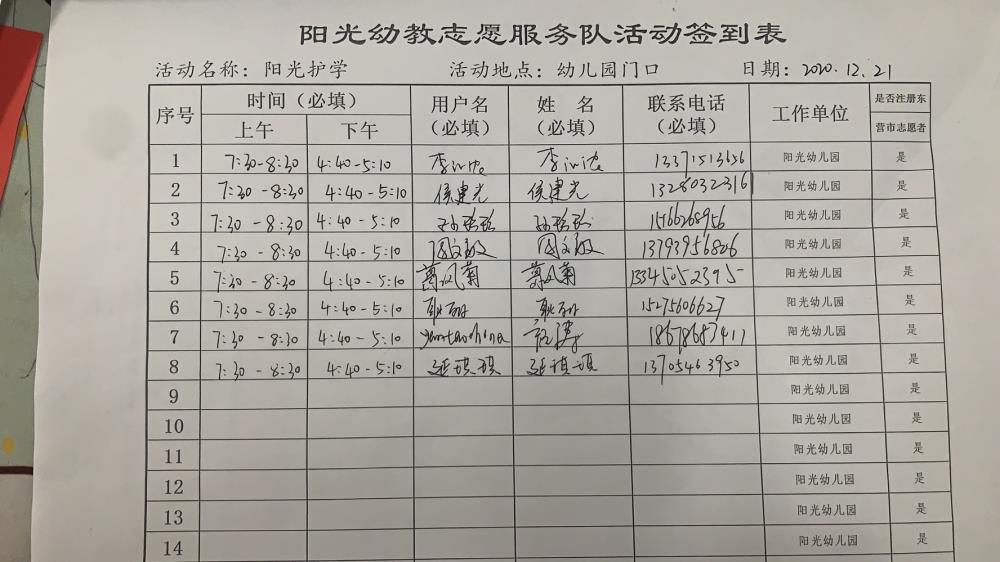 阳光幼教志愿服务队活动签到表
活动名称：阳光护学 活动地点：幼儿园门口 日期：2020.12.21
序号 时间（必填） 用户名（必填） 姓名（必填） 联系电话（必填） 工作单位 是否注册东营市志愿者
上午 下午
1 7:30-8:30 4:40-5:10 李 李 13371513656 阳光幼儿园 是
2 7:30-8:30 4:40-5:10 侯建光 侯建光 13280322316 阳光幼儿园 是
3 7:30-8:30 4:40-5:10 孙 孙 1566268956 阳光幼儿园 是
4 7:30-8:30 4:40-5:10 周文敏 周文敏 13793956826 阳光幼儿园 是
5 7:30-8:30 4:40-5:10 葛凤菊 葛凤菊 13345052395 阳光幼儿园 是
6 7:30-8:30 4:40-5:10 耿 耿 15275606627 阳光幼儿园 是
7 7:30-8:30 4:40-5:10 18678683411 阳光幼儿园 是
8 7:30-8:30 4:40-5:10 延琪琪 延琪琪 13705463950 阳光幼儿园 是
9 阳光幼儿园 是
10 阳光幼儿园 是
11 阳光幼儿园 是
12 阳光幼儿园 是
13 阳光幼儿园 是
14 阳光幼儿园 是